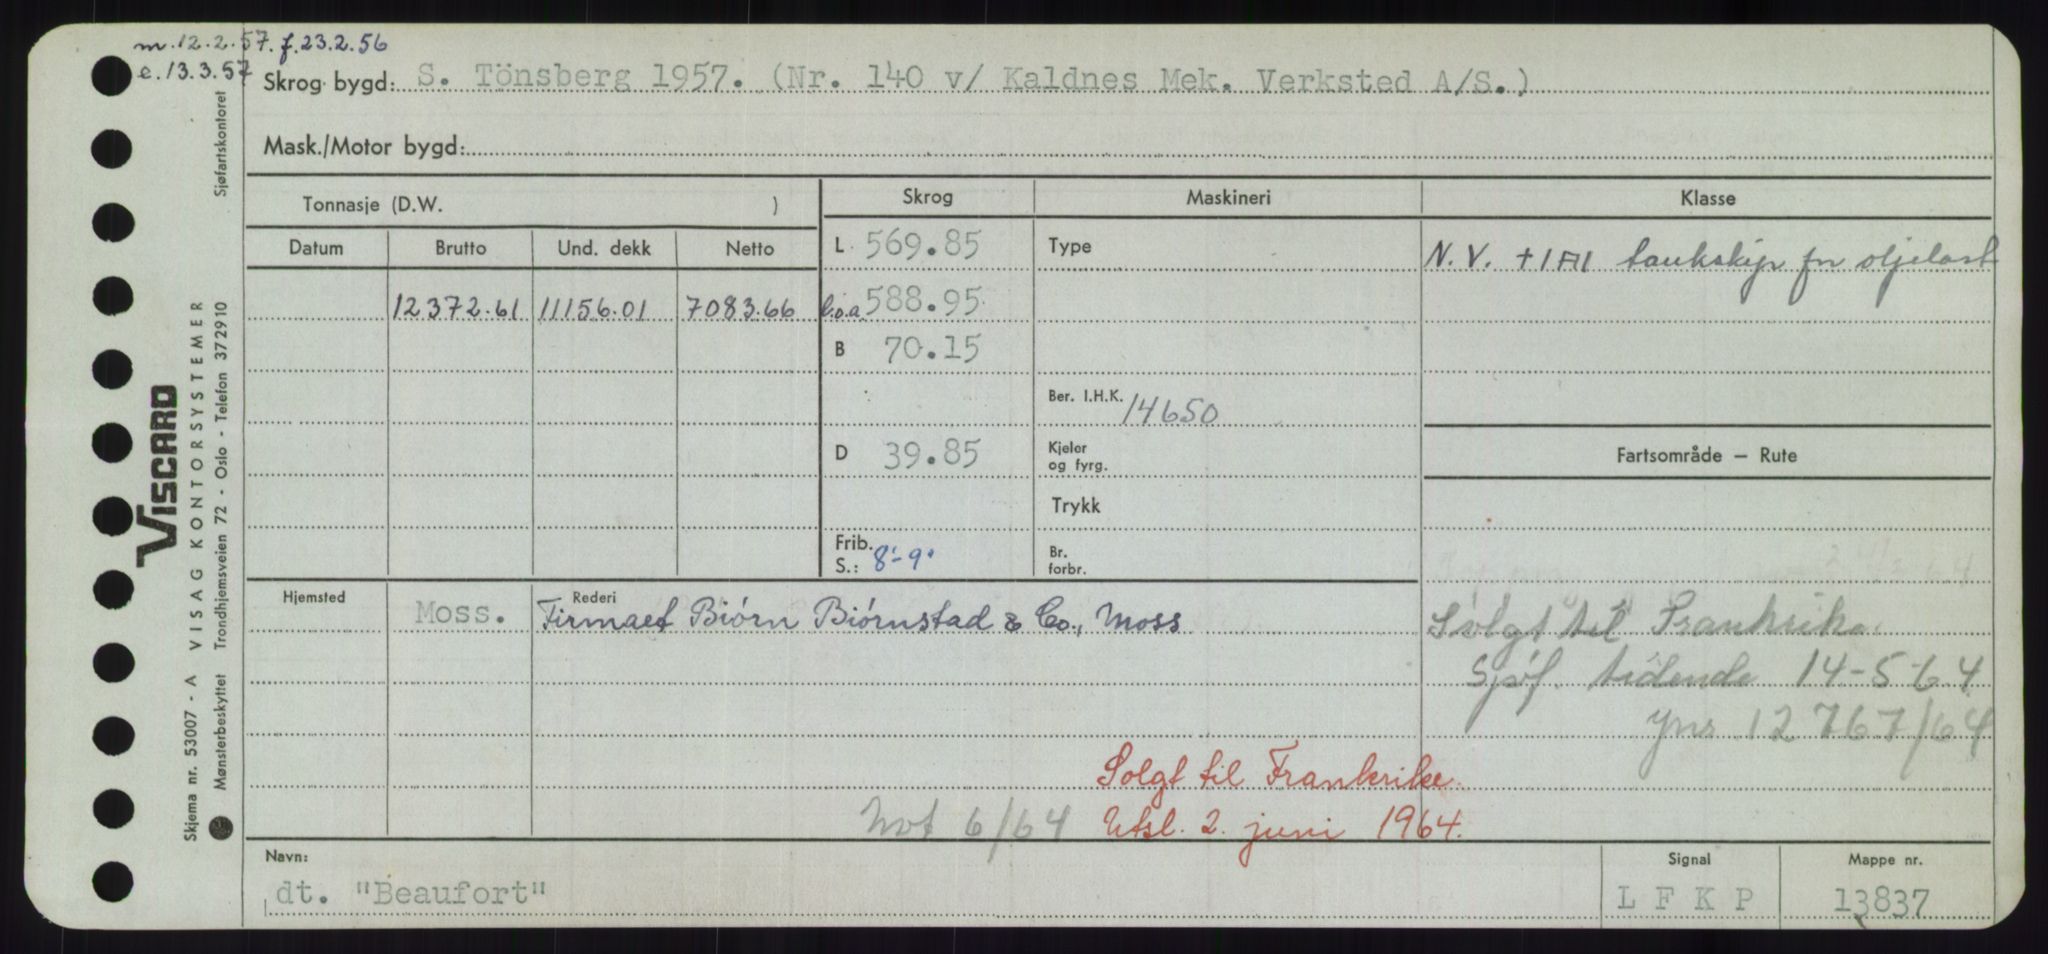 m.12.2.57. f.23.2.56
e.13.3.57
Skrog bygd: S. Tönsberg 1957. (Nr. 140 v/ Kaldnes Mek. Verksted A/S.)
Mask./Motor bygd:
Tonnasje (D.W. )
Skrog Maskineri Klasse
Datum Brutto Und. dekk Netto
L 569.85 Type N.V. +1A1 tankskip for oljelast
12372.61 11156.01 7083.66 l.o.a. 588.95
B 70.15
Ber. I.H.K. 14650
D 39.85 Kjeler og fyrg. Fartsområde — Rute
Trykk
Frib. S.: 8'-9" Br. forbr.
Hjemsted Moss. Rederi Firmaet Biórn Biórnstad & Co., Moss
Solgt til Frankrike
Sjøf. tidende 14-5-64
jnr 12767/64
Solgt til Frankrike.
Not 6/64 Utsl. 2. juni 1964.
Navn: Signal Mappe nr.
dt. "Beaufort" L F K P 13837
Viscard
Skjema nr. 53007 - A VISAG KONTORSYSTEMER
Mønsterbeskyttet Trondhjemsveien 72 - Oslo - Telefon 372910 Sjøfartskontoret